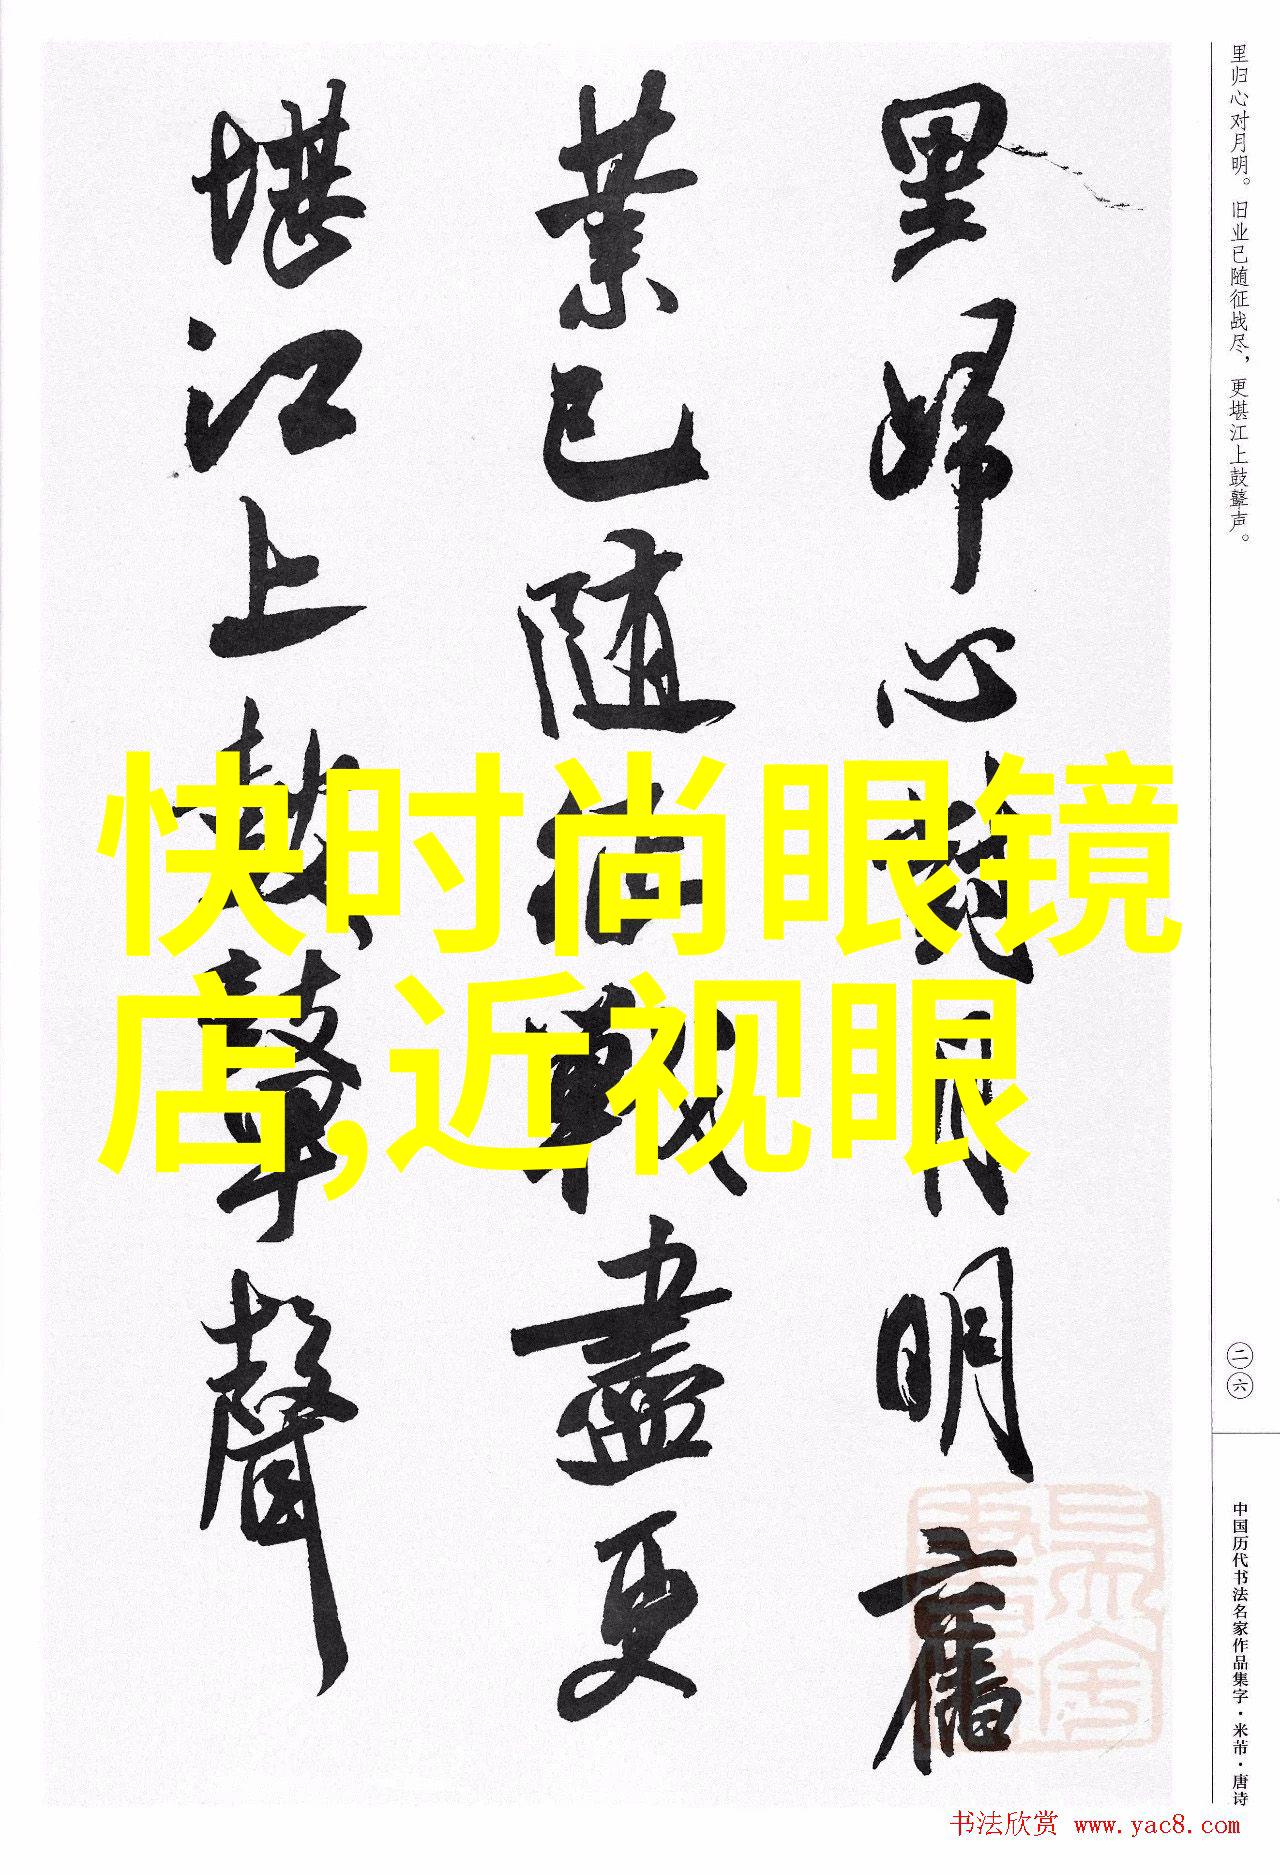 里归心对月明。旧业已随征战尽，更堪江上鼓鼙声。
里歸心對月明舊
業已隨征戰盡更
堪江上鼓鼙聲
快时尚眼镜
店,近视眼
二六
中国历代书法名家作品集字·米芾·唐诗
书法欣赏 www.yac8.com